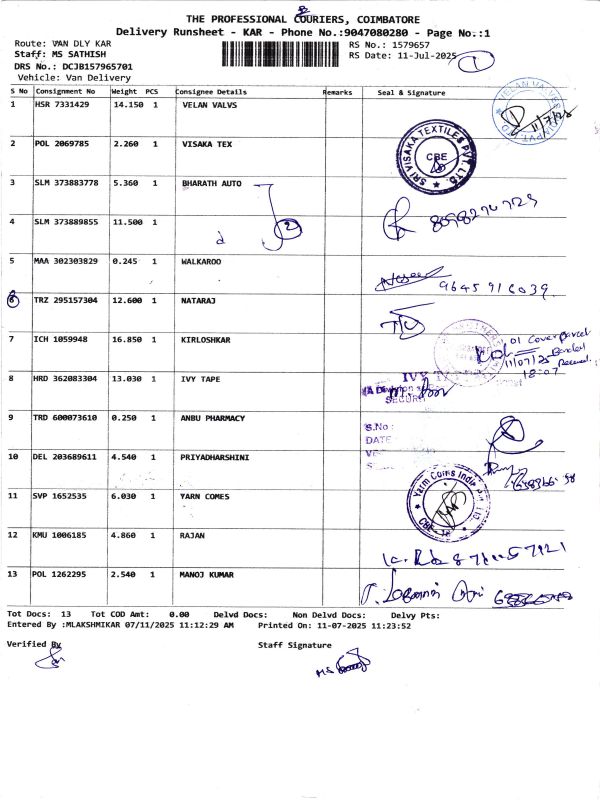 THE PROFESSIONAL COURIERS, COIMBATORE
Delivery Runsheet - KAR - Phone No.:9047080280 - Page No.:1
Route: VAN DLY KAR
RS No.: 1579657
Staff: MS SATHISH
RS Date: 11-Jul-2025
1
DRS No.: DCJB157965701
Vehicle: Van Delivery
S No Consignment No Weight PCS Consignee Details Remarks Seal & Signature
1 HSR 7331429 14.150 1 VELAN VALVS
VELAN VALVES
11/7/25
2 POL 2069785 2.260 1 VISAKA TEX
SRI VISAKA TEXTILES PVT. LTD.
CBE
3 SLM 373883778 5.360 1 BHARATH AUTO
4 SLM 373889855 11.500 1
2
5 MAA 302303829 0.245 1 WALKAROO
9645916039
6 TRZ 295157304 12.600 1 NATARAJ
7 ICH 1059948 16.850 1 KIRLOSHKAR
01 Cover parcel
11/07/25
18:07
8 HRD 362083304 13.030 1 IVY TAPE
IVY
SECURI
9 TRD 600073610 0.250 1 ANBU PHARMACY
S.No :
DATE
10 DEL 203689611 4.540 1 PRIYADHARSHINI
11 SVP 1652535 6.030 1 YARN COMES
Yarn Coms India Pvt. Ltd.
12 KMU 1006185 4.860 1 RAJAN
13 POL 1262295 2.540 1 MANOJ KUMAR
Tot Docs: 13 Tot COD Amt: 0.00 Delvd Docs: Non Delvd Docs: Delvy Pts:
Entered By :MLAKSHMIKAR 07/11/2025 11:12:29 AM Printed On: 11-07-2025 11:23:52
Verified By
Staff Signature